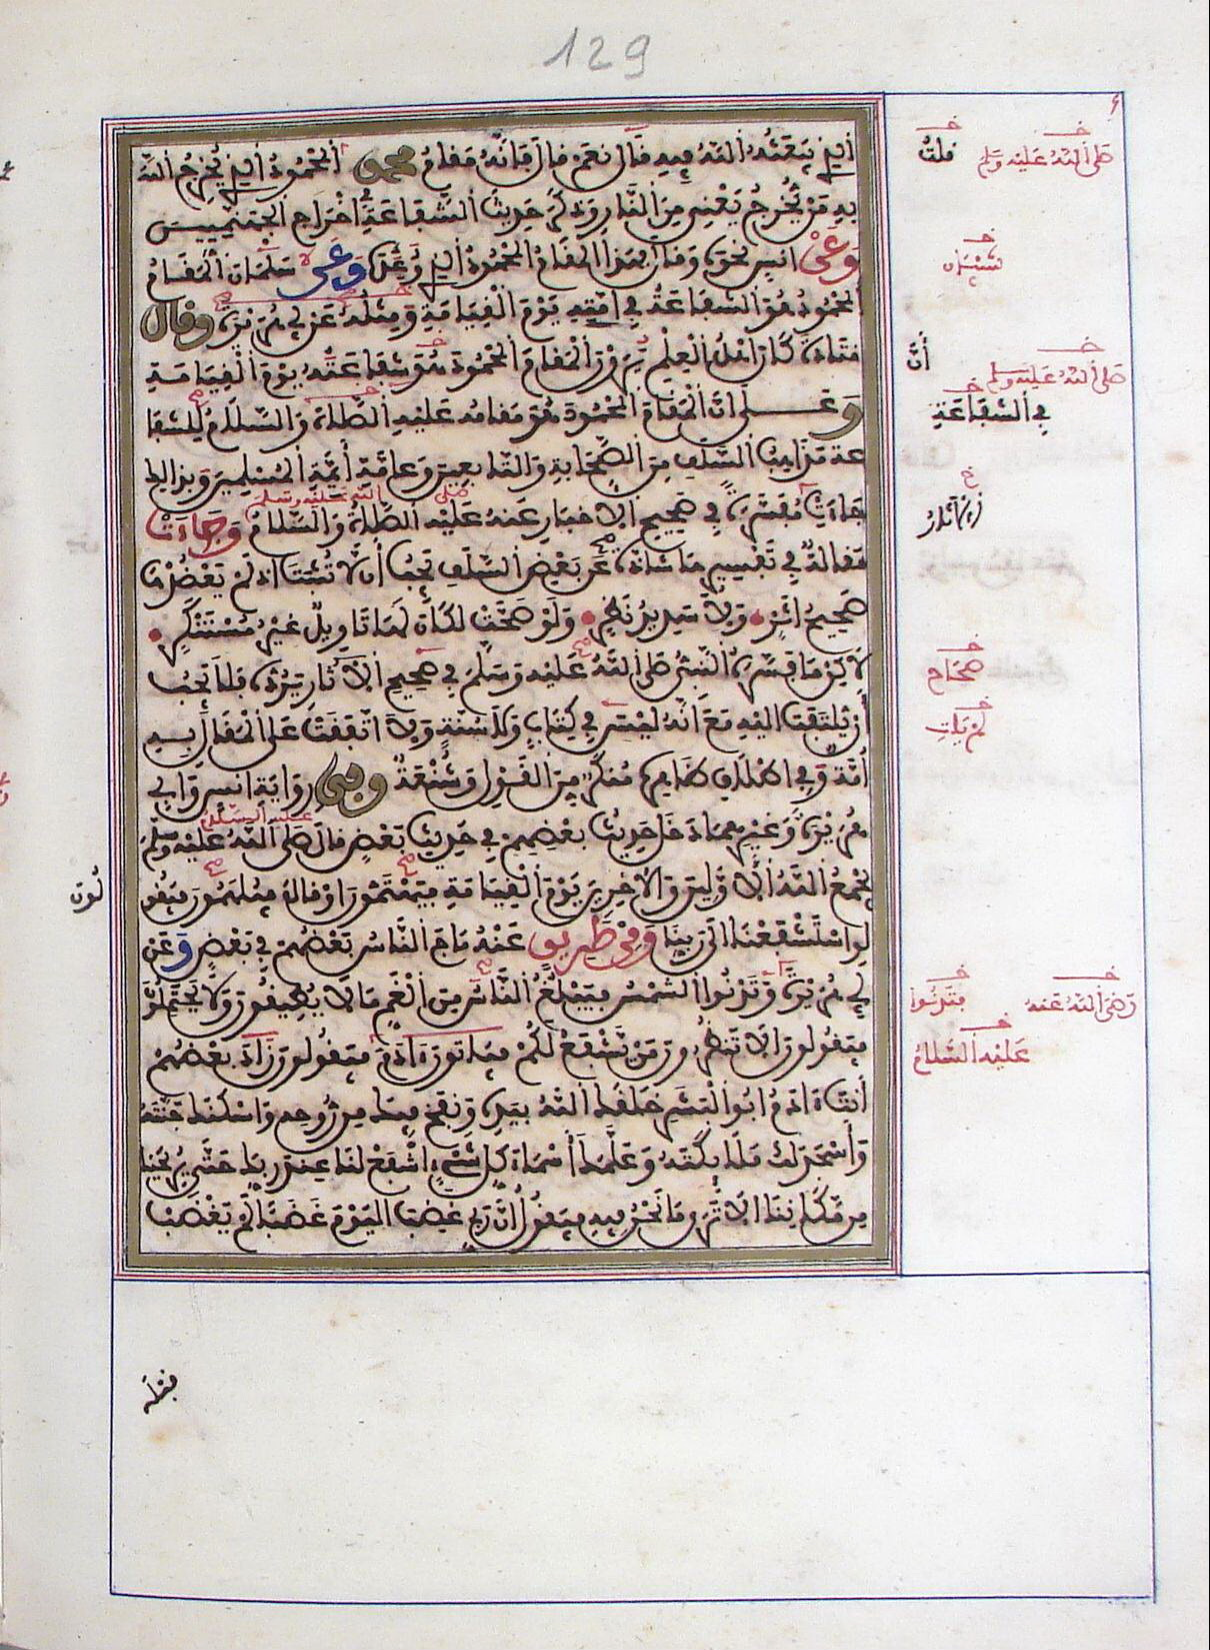 129
الذي يبعثه الله فيه قال نعم قال فإنه مقام محمد المحمود الذي يخرج الله
به من يخرج يعني من النار وذكر حديث الشفاعة في إخراج الجهنميين
وعن انس نحوه وقال بهذا المقام المحمود الذي وعده وعن سلمان المقام
المحمود هو الشفاعة في امته يوم القيامة ومثله عن ابي هريرة وقال
قتادة كان اهل العلم يرون المقام المحمود هو شفاعته يوم القيامة
وعلى ان المقام المحمود هو مقامه عليه الصلاة والسلام للشفا
عة مذاهب السلف من الصحابة والتابعين وعامة أيمة المسلمين وبذالك
جاءت مفسرة في صحيح الاخبار عنه عليه الصلاة والسلام وجاءت
مقالة في تفسيرها شاذة عن بعض السلف يجب أن لا تثبت اذ لم يعضدها
صحيح اثر ولا سديد نظر ولو صحت لكان لها تاويل غير مستنكر
لاكن ما فسره النبي صلى الله عليه وسلم في صحيح الآثار يرده فلا يجب
أن يلتفت اليه مع أنه ليس في كتاب ولا سنة ولا اتفقت على المقال به
أمة وفي اطلاق ظاهره منكر من القول وشنعة وفي رواية انس وابي
هريرة وغيرهما دخل حديث بعضهم في حديث بعض قال صلى الله عليه وسلم
يجمع الله الاولين والاخرين يوم القيامة فيهتمون او قال فيلهمون فيقو
لون لو استشفعنا الى ربنا وفي طريق عنه ماج الناس بعضهم في بعض وعن
ابي هريرة وتدنوا الشمس فيبلغ الناس من الغم ما لا يطيقون ولا يحتملون
فيقولون الا تنظرون من يشفع لكم فياتون ءادم فيقولون زاد بعضهم
أنت ءادم ابوا البشر خلقك الله بيده ونفخ فيك من روحه واسكنك جنته
وأسجد لك ملائكته وعلمك أسماء كل شيء اشفع لنا عند ربك حتى يريحنا
من مكاننا الا ترى ما نحن فيه فيقول ان ربي غضب اليوم غضبا لم يغضب
قلت
صلى الله عليه وسلم
أن
صلى الله عليه وسلم
في الشفاعة
صحاح
لم يات
رضي الله عنه
فتدنوا
عليه السلام
لون
قبله